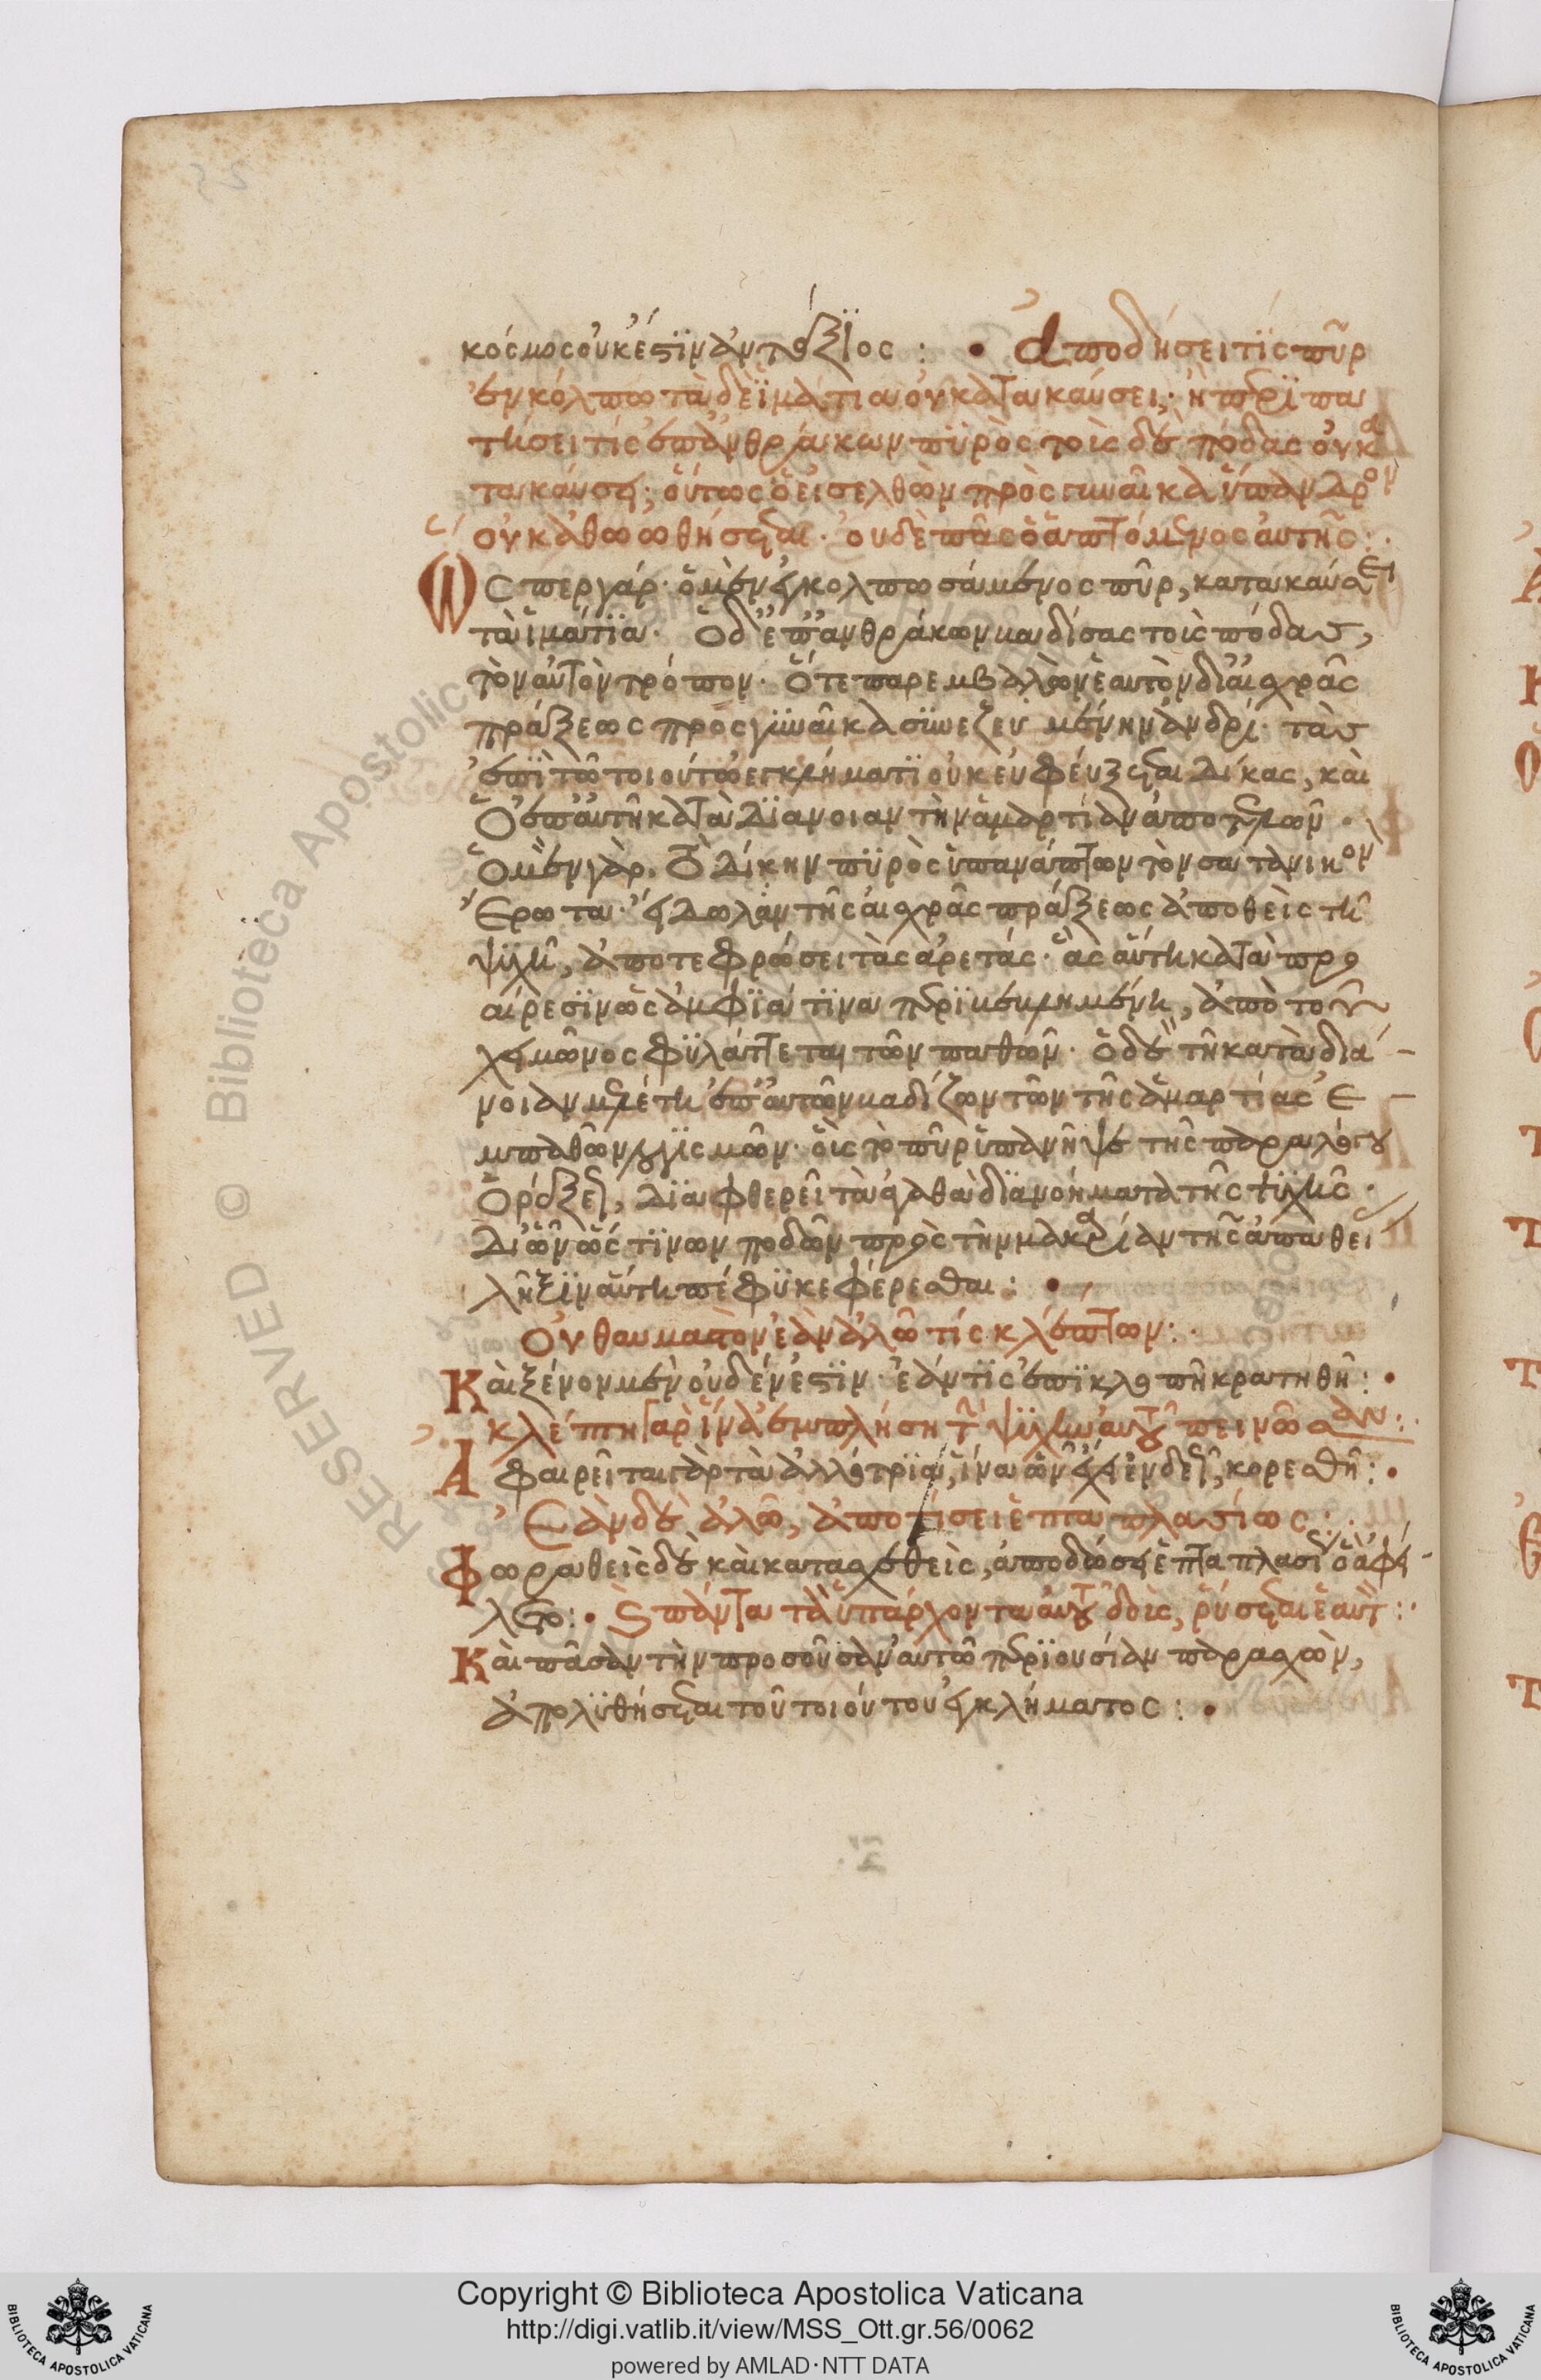 κόσμος οὐκ ἔστϊν ἀντάξϊος : • Ἀποδήσει τίς πῦρ
ἐν κόλπω τὰ δὲ ἱμάτια οὐ κατακαύσει; ἢ περιπα
τήσει τίς ἐπ' ἀνθράκων πϋρὸς τοὺς δὲ πόδας οὐ κα
τακαύσει; οὕτως ὁ εἰσελθὼν πρὸς γυναῖκα ὕπανδρον
οὐκ ἀθωωθήσεται· οὐδὲ πᾶς ὁ ἁπτόμενος αὐτῆς :·
Ὥσπερ γὰρ· ὁ μὲν ἐγκολπωσάμενος πῦρ, κατακαύσει
τὰ ἱμάτϊα· ὁ δ' ἐπ' ἀνθράκων βαδίσας τοὺς πόδας,
τὸν αὐτὸν τρόπον· ὅ τε παρεμβαλὼν ἑαυτὸν δι' αἰσχρᾶς
πράξεως πρὸς γϋναῖκα σϋνεζευγμένην ἀνδρί· τὰς
ἐπὶ τῶ τοιούτω ἐγκλήματϊ οὐκ ἐκφεύξεται δίκας, καὶ
ὁ ἐπ' αὐτῆ κατὰ δϊάνοιαν τὴν ἁμαρτίαν ἀποτελῶν·
ὁ μὲν γὰρ, δίκην πϋρὸς ὑπανάπτων τὸν σατανικὸν
ἔρωτα· εἴδωλον τῆς αἰσχρᾶς πράξεως ἀποθεὶς τῆ
ψϋχῆ, ἀποτεφρώσει τὰς ἀρετάς· ἃς αὕτη κατὰ προ
αίρεσϊν ὡς ἀμφϊά τϊνα περϊβεβλημένη, ἀπὸ τοῦ
χειμῶνος φϋλάττεται τῶν παθῶν· ὁ δὲ τῆ κατὰ διά-
νοιαν μελέτη ἐπ' αὐτῶν βαδίζων τῶν τῆς ἁμαρτίας ἐ-
μπαθῶν λογϊσμῶν· οἷς τὸ πῦρ ὑπανῆψε τῆς παραλόγου
ὀρέξεως, δϊαφθερεῖ τὰ ἀγαθὰ δϊανοήματα τῆς ψϋχῆς·
δι' ὧν ὥς τϊνων ποδῶν πρὸς τὴν μακαρίαν τῆς ἀπαθεί
λῆξϊν αὕτη πέφϋκε φέρεσθαι : •
Οὐ θαυμαστὸν ἐὰν ἁλῶ τίς κλέπτων :·
Καὶ ξένον μὲν οὐδέν ἐστϊν· ἐάν τϊς ἐπὶ κλοπῆ κρατηθῆ : •
κλέπτει γὰρ ἵνα ἐμπλήση τὴν ψϋχὴν αὐτοῦ πεινῶσαν :·
Ἀφαιρεῖται γὰρ τὰ ἀλλότρϊα, ἵνα ὧν ἔχει ἐνδεῶς, κορεσθῆ : •
Ἐὰν δὲ ἁλῶ, ἀποτίσει ἑπταπλασίως :·
Φωραθεὶς δὲ καὶ κατασχεθεὶς, ἀποδώσει ἑπταπλασίως ὃ ἀφεί-
λετο : • καὶ πάντα τὰ ὑπάρχοντα αὐτοῦ δοὺς, ῥύσεται ἑαυτόν :·
Καὶ πᾶσαν τὴν προσοῦσαν αὐτῶ περϊουσίαν παρασχὼν,
ἀπολϋθήσεται τοῦ τοιούτου ἐγκλήματος : •
RESERVED © Biblioteca Apostolica
Copyright © Biblioteca Apostolica Vaticana
http://digi.vatlib.it/view/MSS_Ott.gr.56/0062
powered by AMLAD·NTT DATA
BIBLIOTECA APOSTOLICA VATICANA
BIBLIOTECA APOSTOLICA VATICANA